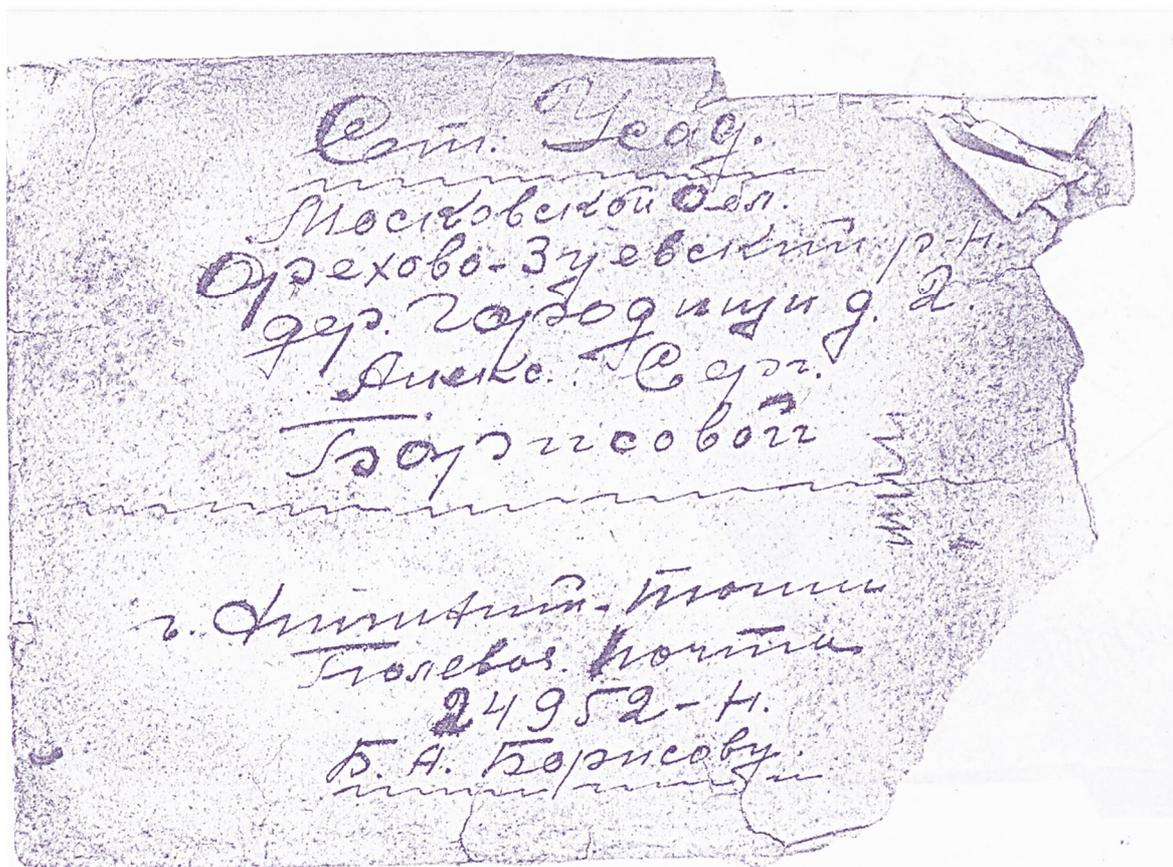 Ст. Усад.
Московской Обл.
Орехово-Зуевский р-н.
дер. Городищи д. 2.
Алекс. Серг.
Борисовой
г.
Полевая Почта
24952-Н.
Б. А. Борисову.